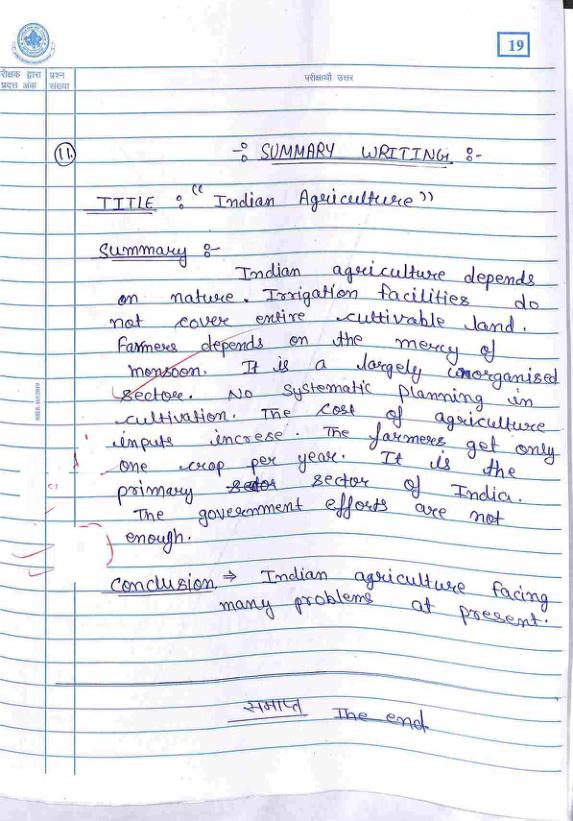 19
परीक्षक द्वारा प्रदत्त अंक
प्रश्न संख्या
परीक्षार्थी उत्तर
11.
-: SUMMARY WRITING :-
TITLE : "Indian Agriculture"
Summary :-
Indian agriculture depends
on nature. Irrigation facilities do
not cover entire cultivable land.
Farmers depends on the mercy of
monsoon. It is a largely unorganised
sector. No systematic planning in
cultivation. The cost of agriculture
inputs increse. The farmers get only
one crop per year. It is the
primary sector of India.
The government efforts are not
enough.
Conclusion ⇒ Indian agriculture facing
many problems at present.
समाप्त The end